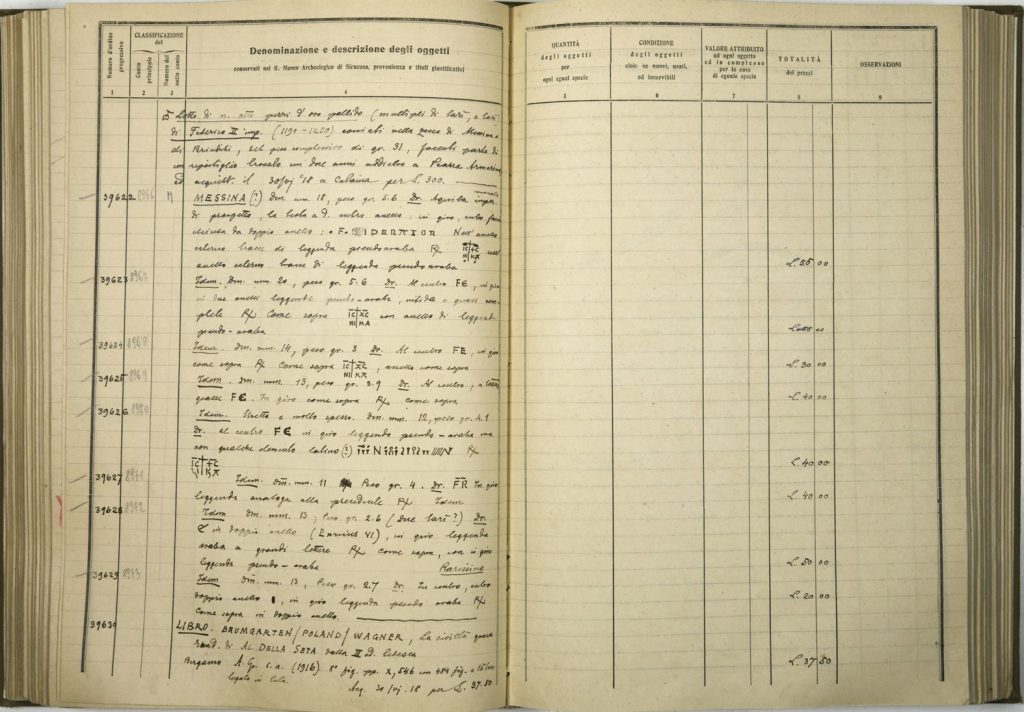 Numero d'ordine progressivo
CLASSIFICAZIONE
del
Conto principale
Numero del sotto conto
Denominazione e descrizione degli oggetti
conservati nel R. Museo Archeologico di Siracusa, provenienza e titoli giustificativi
QUANTITÀ
degli oggetti
per
ogni egual specie
CONDIZIONE
degli oggetti
cioè: se nuovi, usati,
od inservibili
VALORE ATTRIBUITO
ad ogni oggetto
ed in complesso
per le cose
di eguale specie
TOTALITÀ
dei prezzi
OSSERVAZIONI
1 2 3 4 5 6 7 8 9
Lotto di n. otto pezzi d'oro pallido (multipli di tarì, e tarì
di Federico II imp. (1190-1250) coniati nella zecca di Messina e
di Brindisi, del peso complessivo di gr. 31, facenti parte di
un ripostiglio trovato un due anni addietro a Piazza Armerina
acquist. il 30/vj '18 a Catania per L. 300.
39622 8966 MESSINA (?) Dm. mm. 18, peso gr. 5.6 Dr. Aquila
di prospetto, la testa a d. entro anello; in giro,
chiusa da doppio anello: IPERATOR Nell'anello
esterno tracce di leggenda pseudoaraba IC XC NI KA nell'
anello esterno tracce di leggenda pseudo araba
L. 55 00
39623 8967 Idem. Dm. mm. 20, peso gr. 5.6 Dr. Al centro FE, in giro
in due anelli leggende pseudo-arabe, nitida e quasi com-
pleta Come sopra IC XC NI KA con anello di leggenda
pseudo-araba
39624 8968 Idem. Dm. mm. 14, peso gr. 3 Dr. Al centro FE, in giro
come sopra Come sopra IC XC NI KA, anello come sopra
L. 30 00
39625 8969 Idem. Dm. mm. 13, peso gr. 3.9 Dr. Al centro, a lettere
grasse FE. In giro come sopra come sopra
L. 40 00
39626 8970 Idem. e molto spesso. Dm. mm. 12, peso gr. 4.1
Dr. al centro FE in giro leggenda pseudo-araba ma
con qualche elemento latino (?)
L. 40 00
39627 8971 Idem. Dm. mm. 11 Peso gr. 4. Dr. FR In giro
leggenda analoga alla precedente Idem
L. 40 00
39628 8972 Idem Dm. mm. 13; Peso gr. 2.6 (Due tarì?) Dr.
in doppio anello (Enricus VI), in giro leggenda
araba a grandi lettere come sopra, con in giro
leggenda pseudo-araba Rarissimo
L. 50 00
39629 8973 Idem Dm. mm. 13, Peso gr. 2.7 Dr. In centro, entro
doppio anello, in giro leggenda pseudo araba
Come sopra in doppio anello.
L. 20 00
39630 LIBRO. BAUMGARTEN/POLAND/WAGNER, La civiltà greca
Trad. di AL. DELLA SETA dalla II ed. tedesca
Bergamo A. G. s.a. (1916) 8° fig. pp. X, 546 con 484 fig. e 15 tav.
legato in tela.
Acq. 30/vj. 18 per L. 37.50
L. 37 50